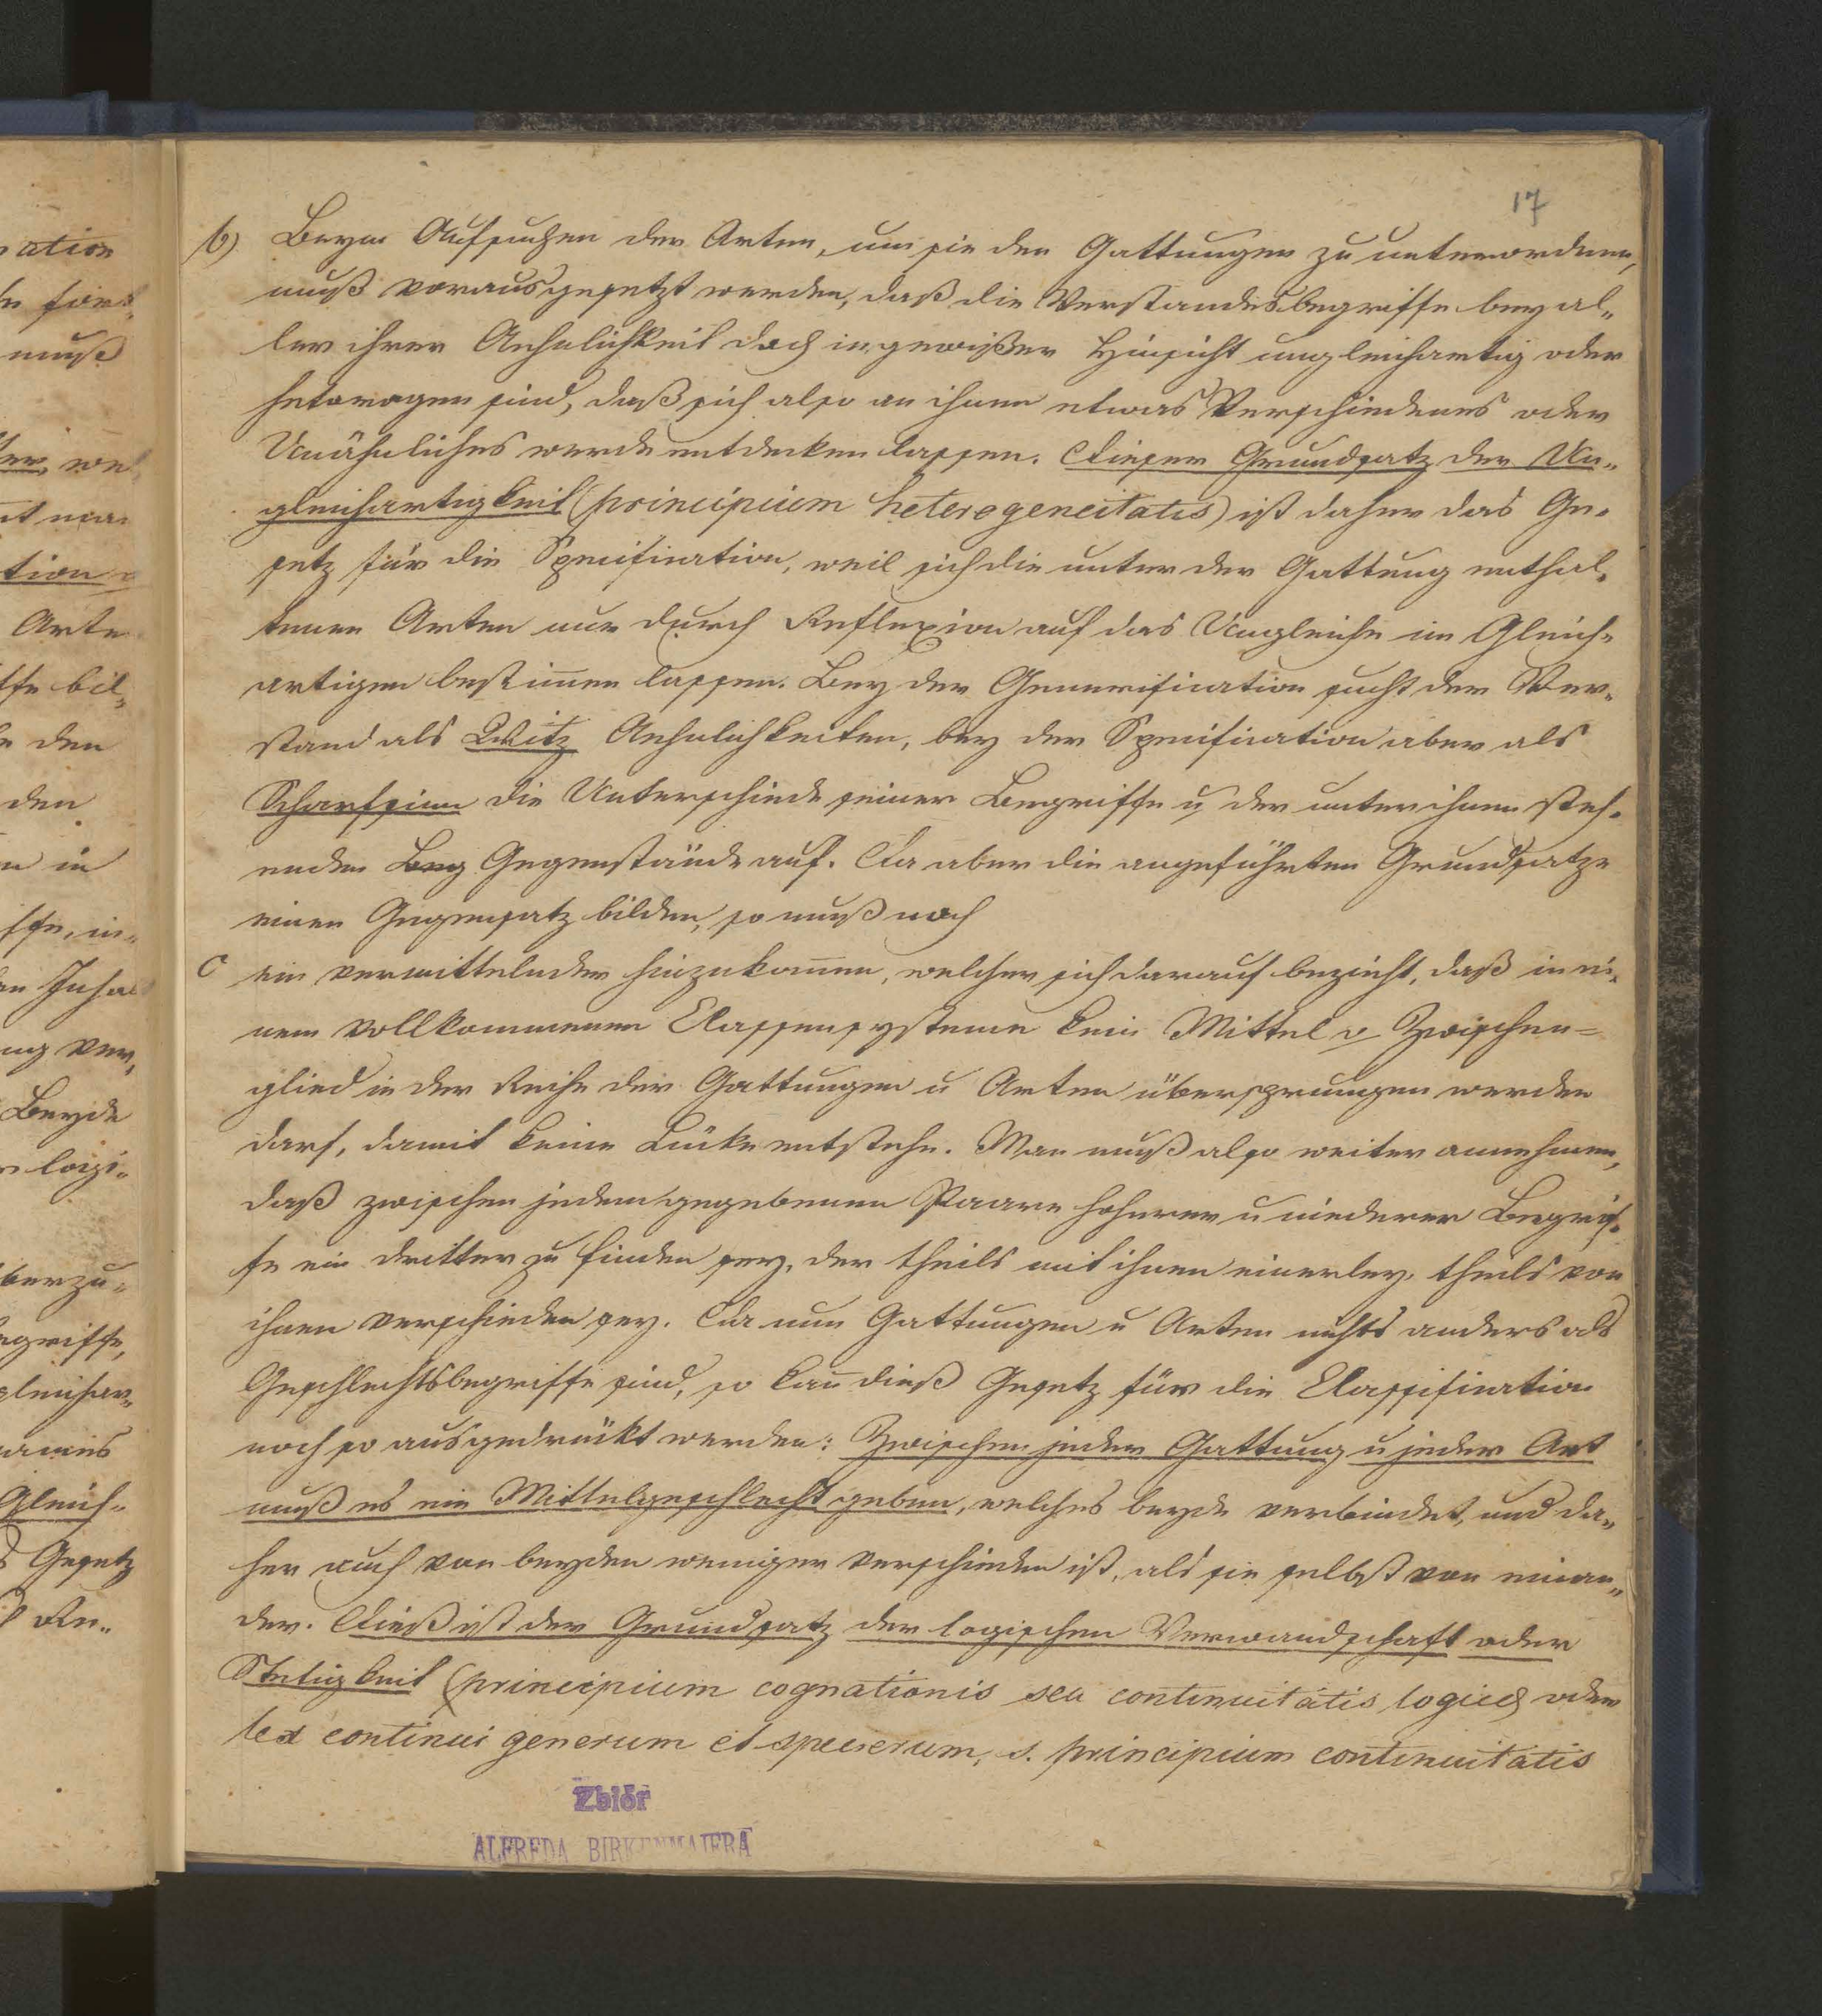 17
b) Beym Aufsuchen der Arten, um sie den Gattungen zu unterordnen,
muß vorausgesetzt werden, daß die Verstandesbegriffe bey al-
ler ihrer Aehnlichkeit doch in gewißer Hinsicht ungleichartig oder
heterogen sind, daß sich also an ihnen etwas Verschiedenes oder
Unähnliches werde entdecken lassen. Dieser Grundsatz der Un-
gleichartigkeit (principium heterogeneitatis) ist daher das Ge-
setz für die Specification, weil sich die unter der Gattung enthal-
tenen Arten nur durch Reflexion auf das Ungleiche im Gleich-
artigen bestim̄en lassen. Bey der Generification sucht der Ver-
stand als Witz Aehnlichkeiten, bey der Specification aber als
Scharfsinn die Unterschiede seiner Begriffe u. der unter ihnen steh-
enden Beg Gegenstände auf. Da aber die angeführten Grundsatze
einen Gegensatz bilden, so muß noch
c ein vermittelnder hinzukom̄en, welcher sich darauf bezieht, daß in ei-
nem vollkommenen Classensysteme kein Mittel o Zwischen=
glied in der Reihe der Gattungen u Arten übersprungen werden
darf, damit keine Lücke entstehe. Man muß also weiter annehmen,
daß zwischen jedem gegebenen Paare hoherer u niederer Begrif-
fe ein dritter zu finden sey, der theils mit ihnen einerley, theils von
ihnen verschieden sey. Da nun Gattungen u Arten nichts anders als
Geschlechtsbegriffe sind, so kan̄ dieß Gesetz für die Classification
noch so ausgedrückt werden: Zwischen jeder Gattung u jeder Art
muß es ein Mittelgeschlecht geben, welches beyde verbindet, und da-
her auch von beyden weniger verschieden ist, als sie selbst von einan-
der. Dieß ist der Grundsatz der logischen Verwandschaft oder
Stetigkeit (principium cognationis seu continuitatis logicæ oder
lex continui generum et specierum, s. principium continuitatis
Zbiór
ALFREDA BIRKENMAJERA